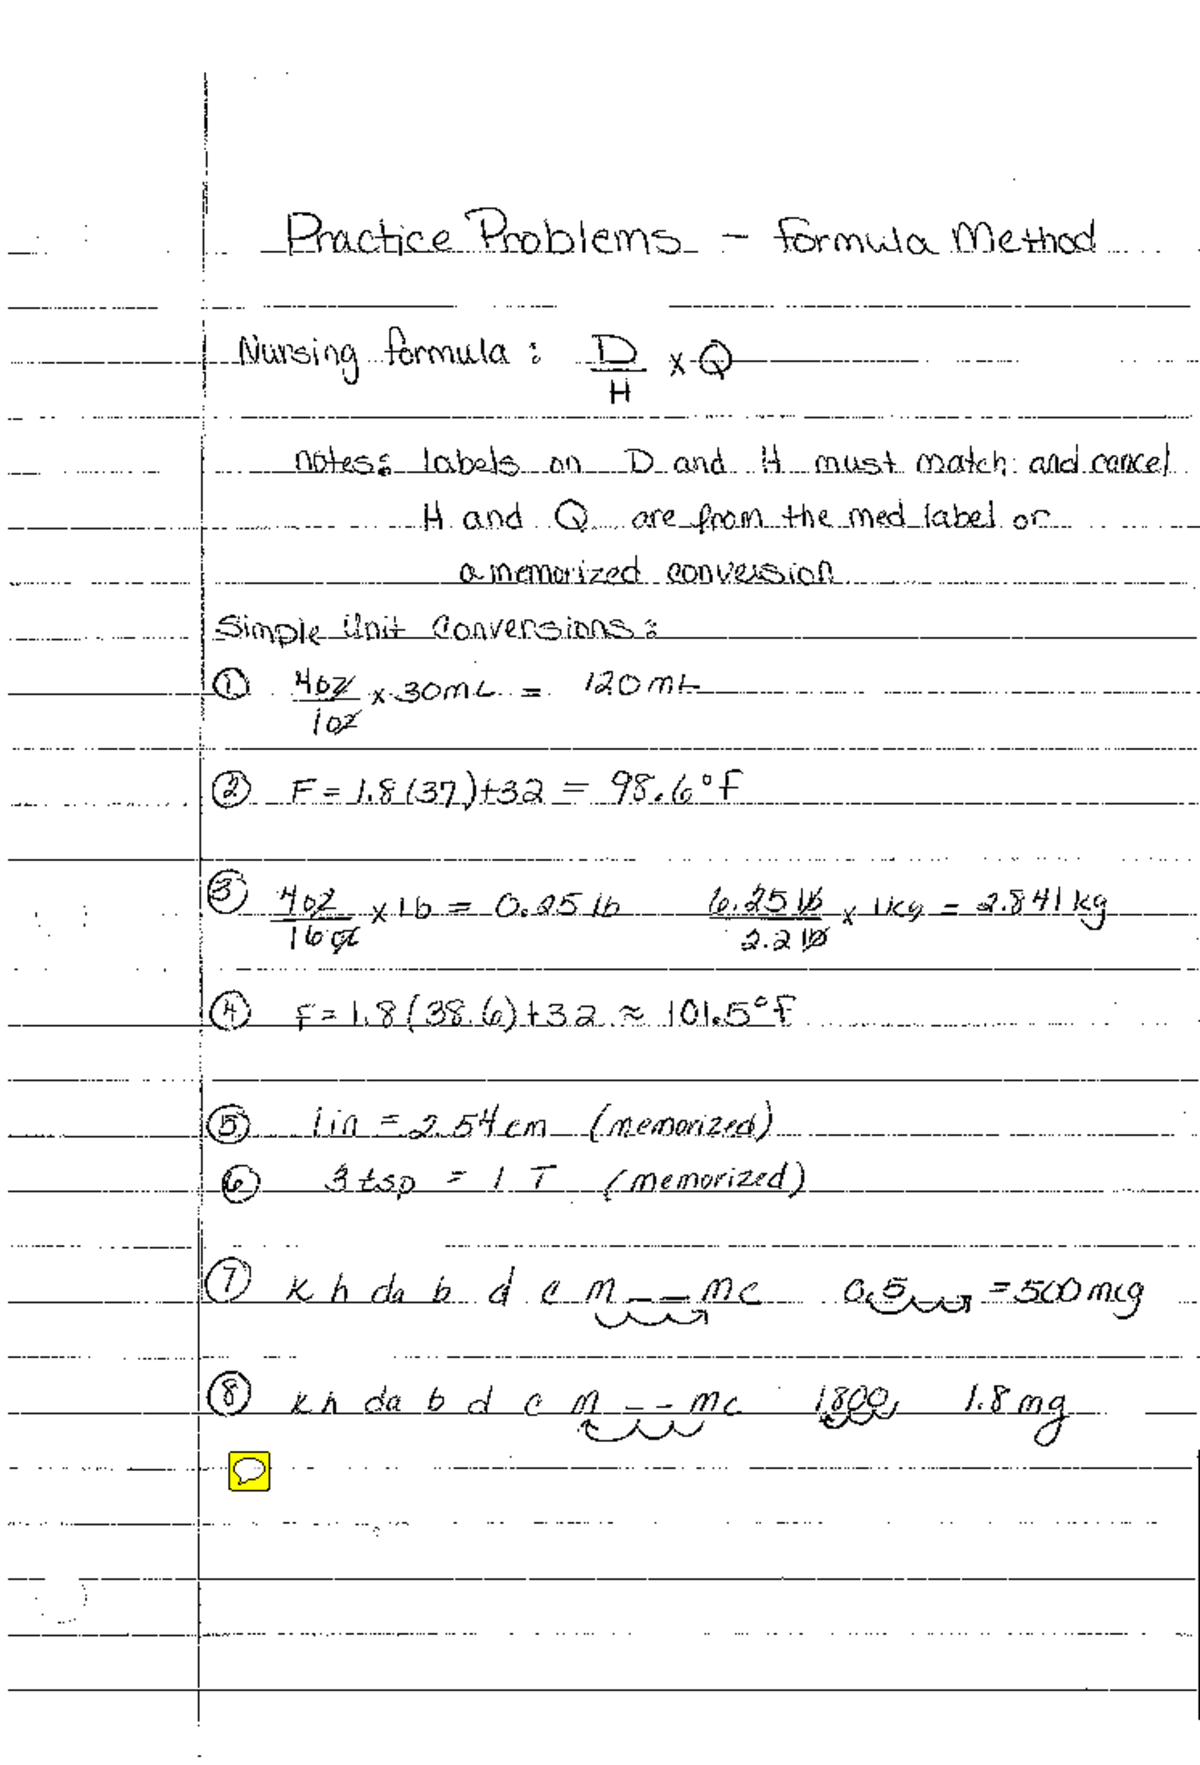 Practice Problems - Formula Method
Nursing formula: D/H x Q
notes: labels on D and H must match and cancel
H and Q are from the med label or
a memorized conversion
Simple Unit Conversions:
① 4oz/1oz x 30mL = 120mL
② F = 1.8(37)+32 = 98.6°F
③ 4oz/16oz x 1b = 0.25 lb 6.25 lb/2.2 lb x 1kg = 2.841 kg
④ F = 1.8(38.6)+32 ≈ 101.5°F
⑤ 1in = 2.54cm (memorized)
⑥ 3tsp = 1 T (memorized)
⑦ k h da b d c m _ _ mc 0.5 = 500mcg
⑧ k h da b d c m - - mc 1800 1.8mg